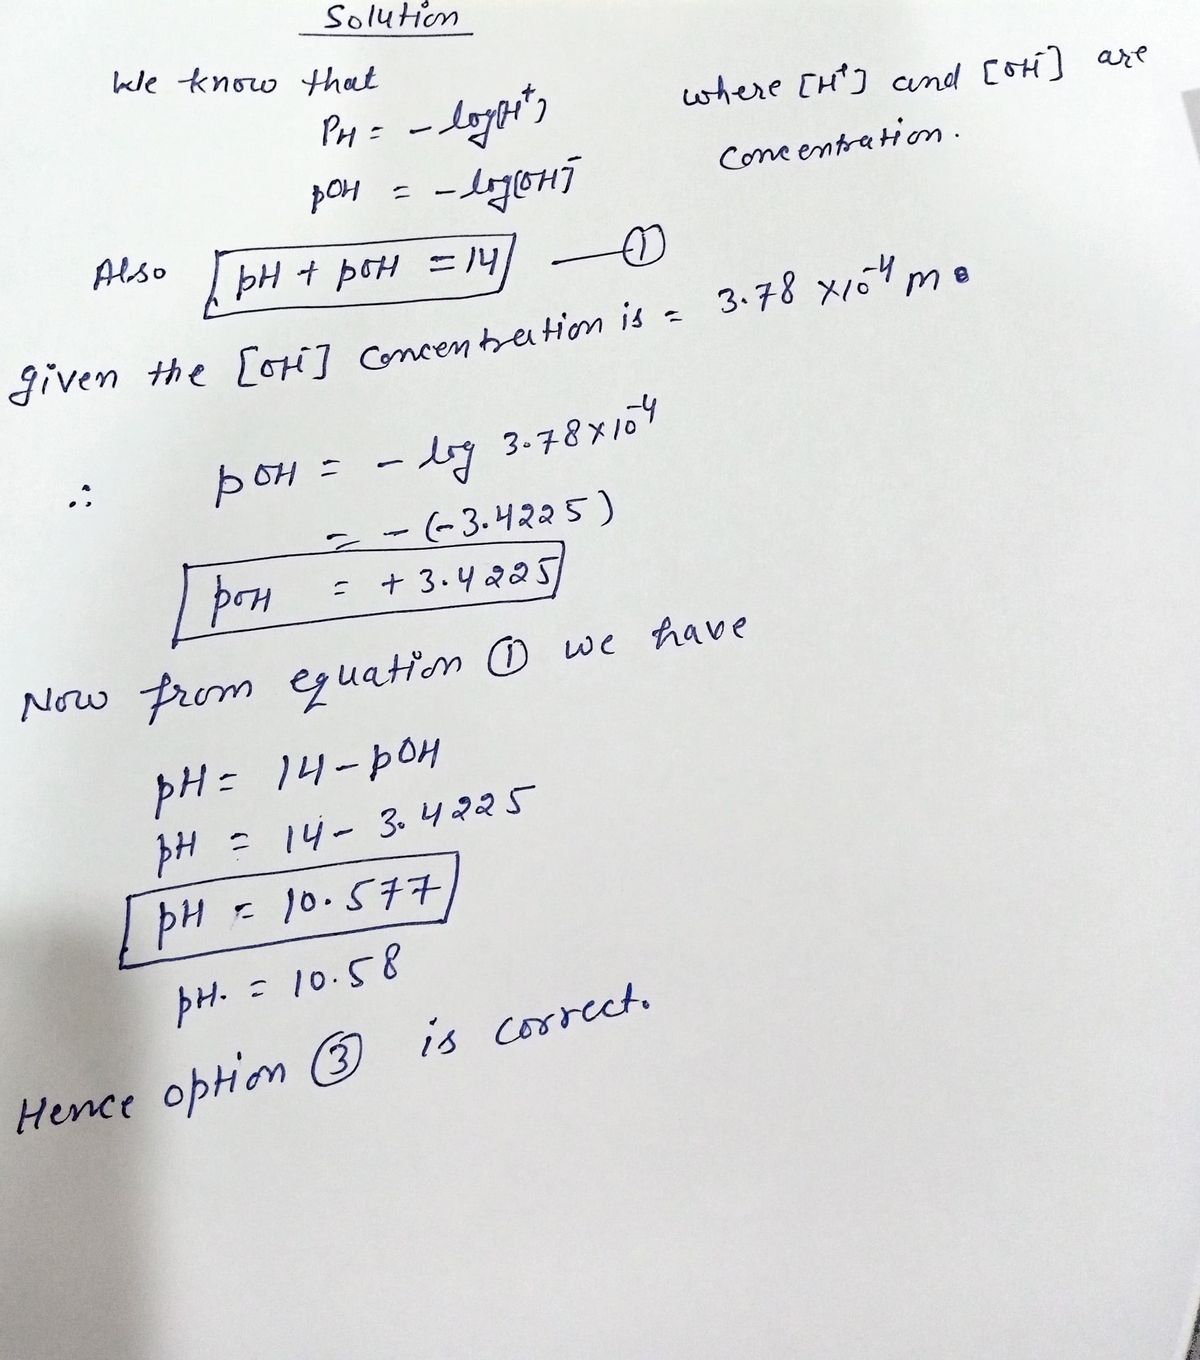 Solution
We know that
PH = - log[H⁺]
where [H⁺] and [OH⁻] are
concentration.
pOH = - log[OH]⁻
Also pH + pOH = 14 — ①
given the [OH⁻] concentration is = 3.78 × 10⁻⁴ m
∴ pOH = - log 3.78 × 10⁻⁴
= - (-3.4225)
pOH = + 3.4225
Now from equation ① we have
pH = 14 - pOH
pH = 14 - 3.4225
pH = 10.577
pH. = 10.58
Hence option ③ is correct.